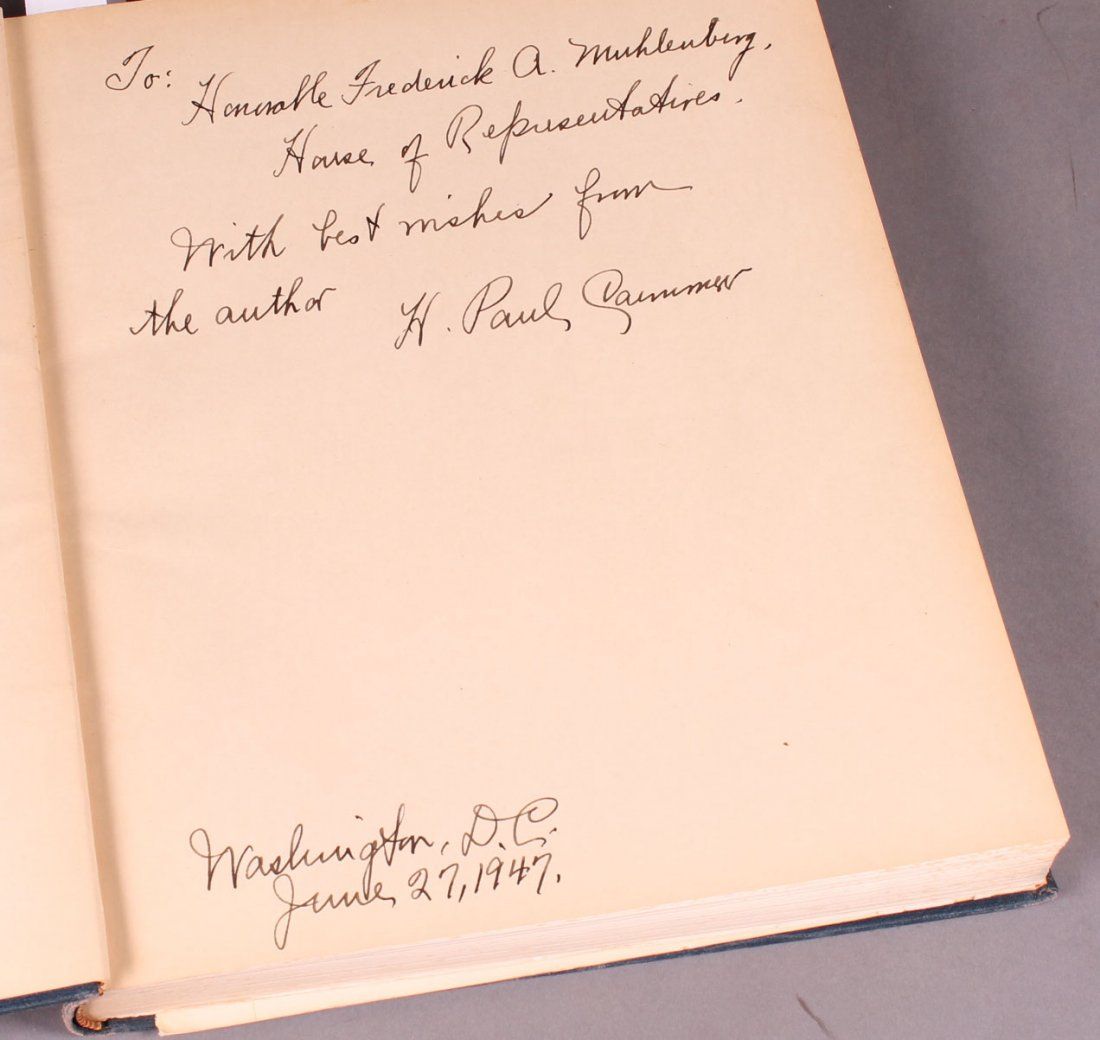 To: Honorable Frederick A. Muhlenberg,
House of Representatives.
With best wishes from
the author H. Paul Caemmerer
Washington, D.C.
June 27, 1947.